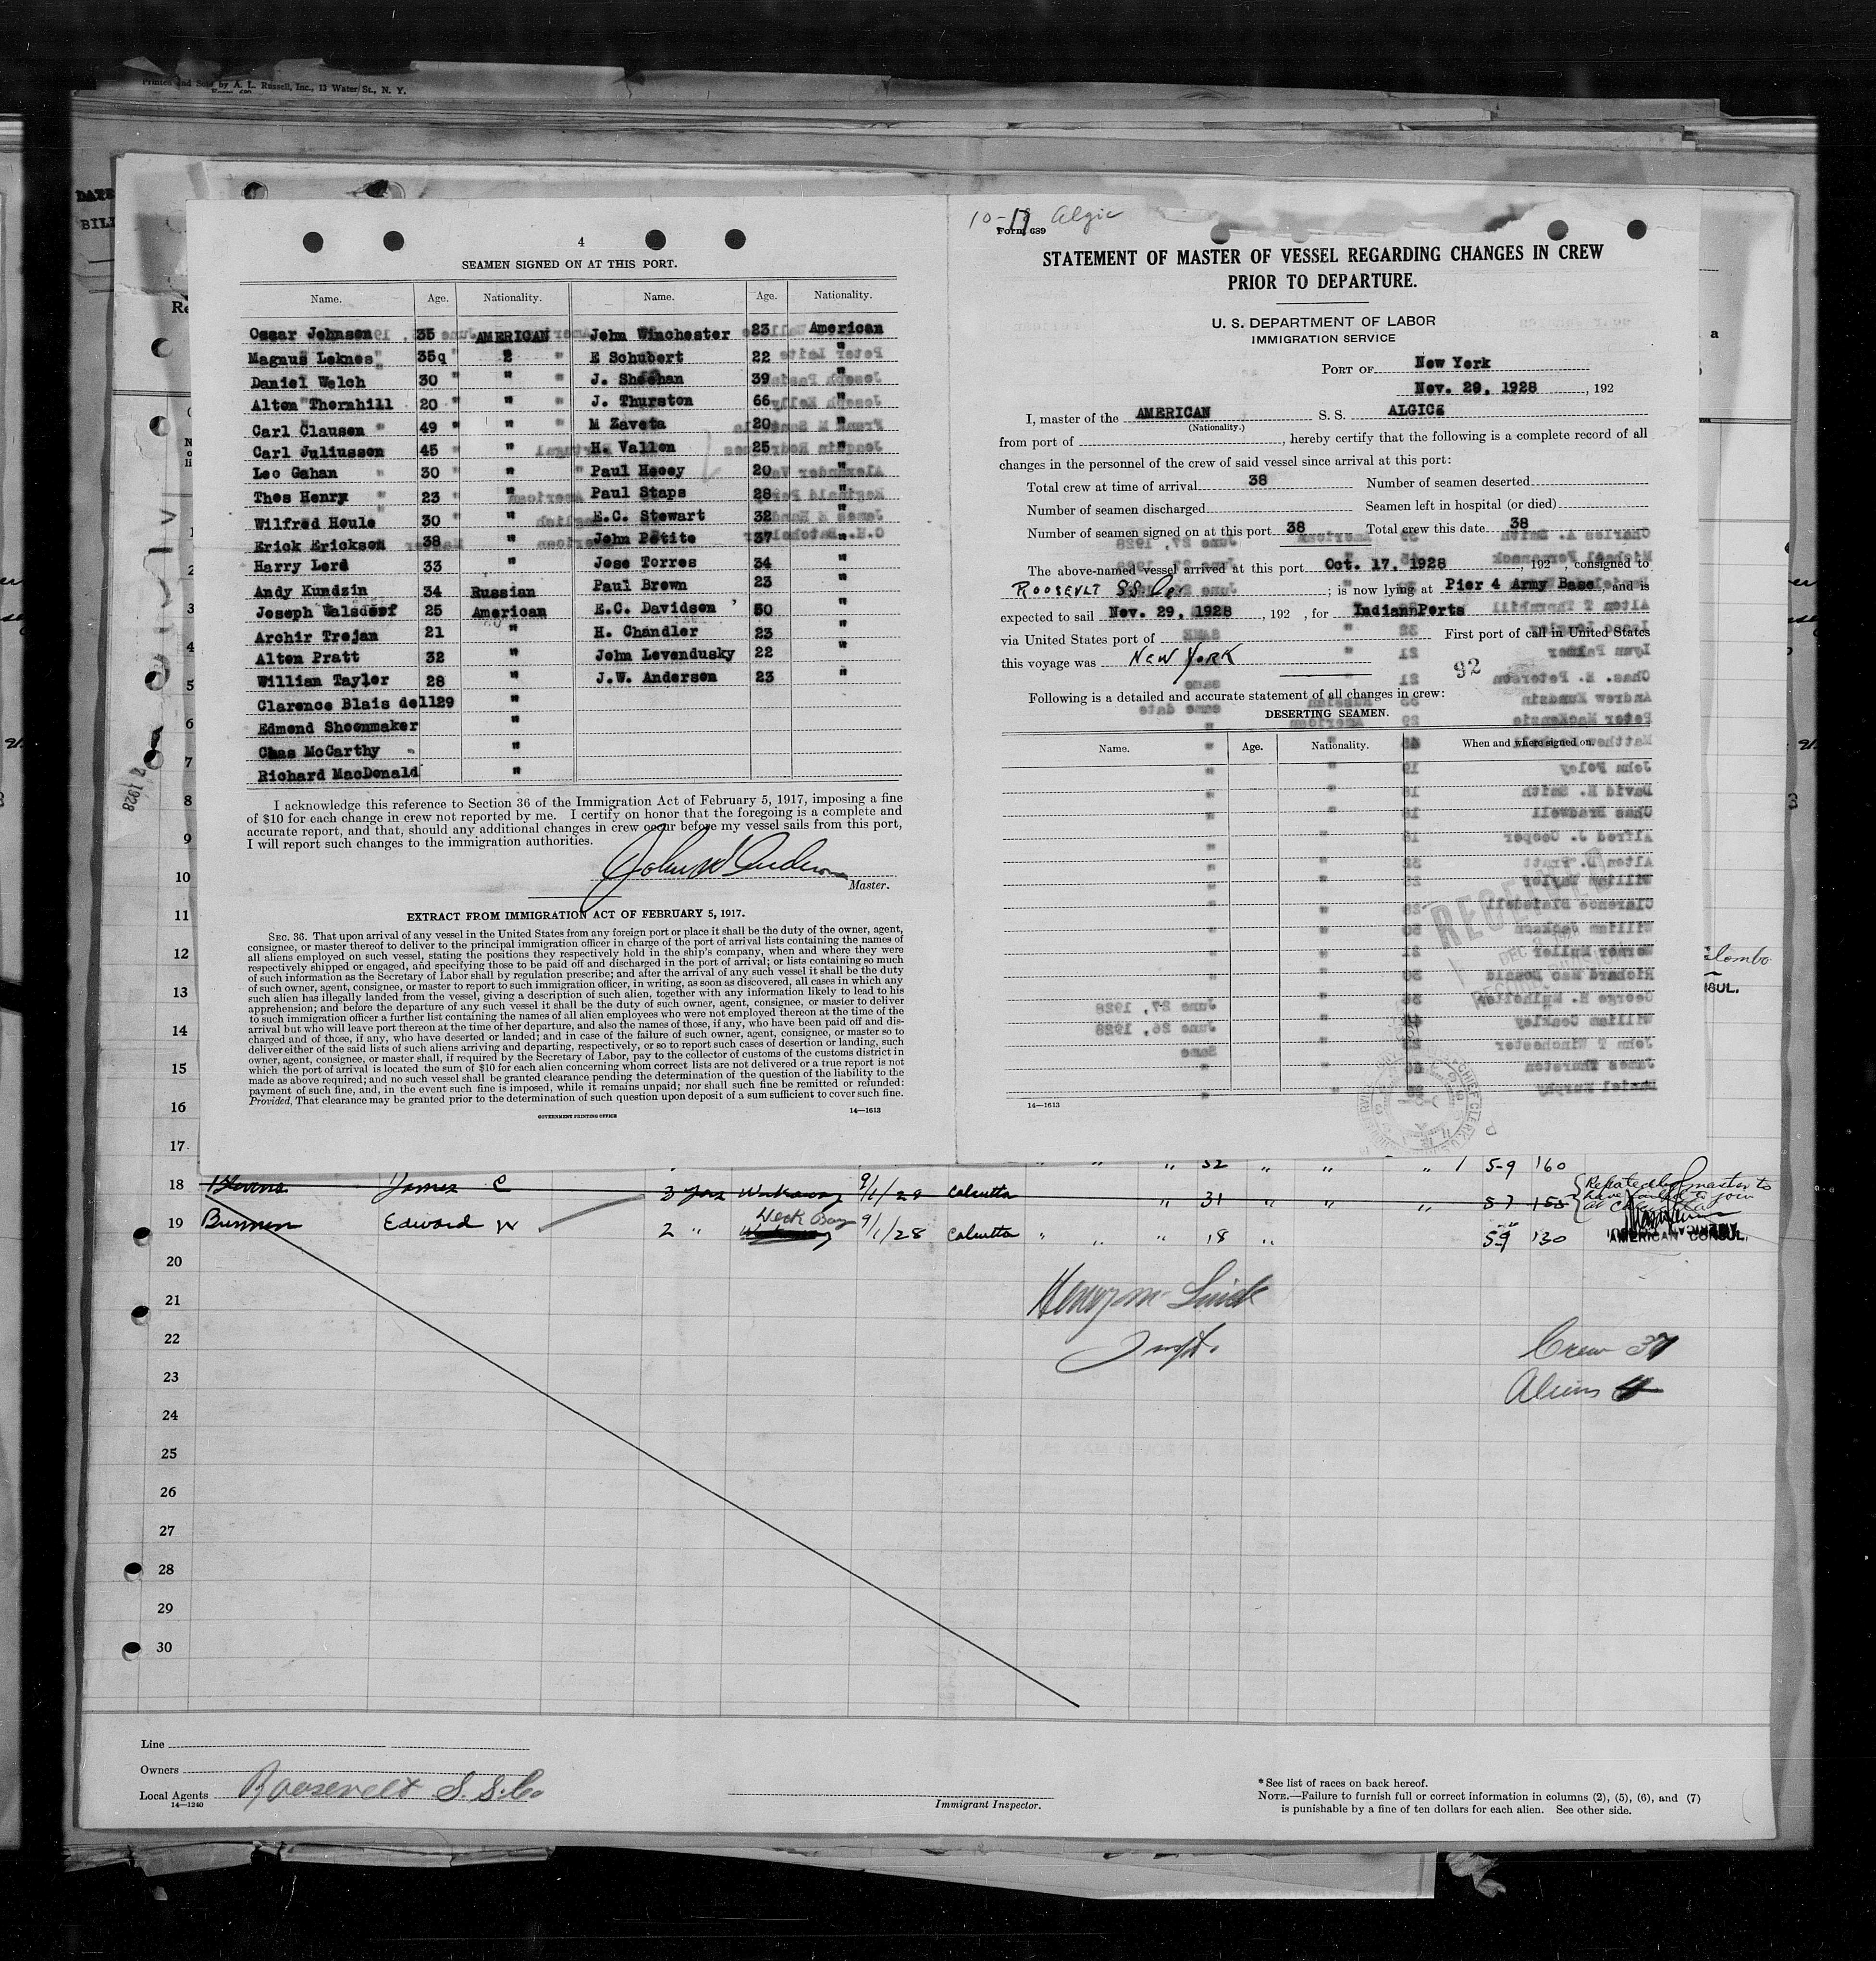 Printed and Sold by A. L. Russell, Inc., 13 Water St., N. Y.
DATE
BILL
4
SEAMEN SIGNED ON AT THIS PORT.
Name. Age. Nationality. Name. Age. Nationality.
Oscar Johnson 35 AMERICAN John Winchester 23 American
Magnus Leknes 35q " E Schubert 22 "
Daniel Welch 30 " J. Sheehan 39 "
Alton Thornhill 20 " J. Thurston 66 "
Carl Clausen 49 " M Zaveta 20 "
Carl Juliussen 45 " H. Vallon 25 "
Leo Gahan 30 " Paul 20 "
Thos Henry 23 " Paul Staps 28 "
Wilfred Houle 30 " E.C. Stewart 32 "
Erick Erickson 38 " John Petite 37 "
Harry Lord 33 " Jose Torres 34 "
Andy Kundzin 34 Russian Paul Brown 23 "
Joseph Walsdorf 25 American E.C. Davidson 50 "
Archir Trojan 21 " H. Chandler 23 "
Alton Pratt 32 " John Levendusky 22 "
Willian Taylor 28 " J.W. Anderson 23 "
Clarence Blais dell29 "
Edmond Shoonmaker "
Chas McCarthy "
Richard MacDonald "
I acknowledge this reference to Section 36 of the Immigration Act of February 5, 1917, imposing a fine
of $10 for each change in crew not reported by me. I certify on honor that the foregoing is a complete and
accurate report, and that, should any additional changes in crew occur before my vessel sails from this port,
I will report such changes to the immigration authorities.
John W Anderson
Master.
EXTRACT FROM IMMIGRATION ACT OF FEBRUARY 5, 1917.
SEC. 36. That upon arrival of any vessel in the United States from any foreign port or place it shall be the duty of the owner, agent,
consignee, or master thereof to deliver to the principal immigration officer in charge of the port of arrival lists containing the names of
all aliens employed on such vessel, stating the positions they respectively hold in the ship's company, when and where they were
respectively shipped or engaged, and specifying those to be paid off and discharged in the port of arrival; or lists containing so much
of such information as the Secretary of Labor shall by regulation prescribe; and after the arrival of any such vessel it shall be the duty
of such owner, agent, consignee, or master to report to such immigration officer, in writing, as soon as discovered, all cases in which any
such alien has illegally landed from the vessel, giving a description of such alien, together with any information likely to lead to his
apprehension; and before the departure of any such vessel it shall be the duty of such owner, agent, consignee, or master to deliver
to such immigration officer a further list containing the names of all alien employees who were not employed thereon at the time of the
arrival but who will leave port thereon at the time of her departure, and also the names of those, if any, who have been paid off and dis-
charged and of those, if any, who have deserted or landed; and in case of the failure of such owner, agent, consignee, or master so to
deliver either of the said lists of such aliens arriving and departing, respectively, or so to report such cases of desertion or landing, such
owner, agent, consignee, or master shall, if required by the Secretary of Labor, pay to the collector of customs of the customs district in
which the port of arrival is located the sum of $10 for each alien concerning whom correct lists are not delivered or a true report is not
made as above required; and no such vessel shall be granted clearance pending the determination of the question of the liability to the
payment of such fine, and, in the event such fine is imposed, while it remains unpaid; nor shall such fine be remitted or refunded:
Provided, That clearance may be granted prior to the determination of such question upon deposit of a sum sufficient to cover such fine.
GOVERNMENT PRINTING OFFICE 14—1613
10-17 Algic
Form 689
STATEMENT OF MASTER OF VESSEL REGARDING CHANGES IN CREW
PRIOR TO DEPARTURE.
U. S. DEPARTMENT OF LABOR
IMMIGRATION SERVICE
PORT OF New York
Nov. 29, 1928, 192
I, master of the AMERICAN S. S. ALGIC
(Nationality.)
from port of , hereby certify that the following is a complete record of all
changes in the personnel of the crew of said vessel since arrival at this port:
Total crew at time of arrival 38 Number of seamen deserted
Number of seamen discharged Seamen left in hospital (or died)
Number of seamen signed on at this port 38 Total crew this date 38
The above-named vessel arrived at this port Oct. 17, 1928, 192 , consigned to
ROOSEVLT SS Co. ; is now lying at Pier 4 Army Base, and is
expected to sail Nov. 29, 1928, 192 , for IndiannPorts
via United States port of First port of call in United States
this voyage was NEW YORK
92
Following is a detailed and accurate statement of all changes in crew:
DESERTING SEAMEN.
Name. Age. Nationality. When and where signed on.
RECEIVED
14—1613
1
2
3
4
5
6
7
8
9
10
11
12
13
14
15
16
17
" " " 32 " " " 1 5-9 160
18 Stevens James C 3 yrs Workaway 9/1/28 Calcutta " 31 " " " 5-7 155 Reported by master to have failed to join at
19 Burmen Edward W 2 " Deck Boy Workaway 9/1/28 Calcutta " " " 18 " 5-9 130
AMERICAN CONSUL.
20
21
22
23
24
25
26
27
28
29
30
Insp.
Crew 37
Aliens
Line
Owners
Local Agents Roosevelt S.S.Co
14—1240
Immigrant Inspector.
* See list of races on back hereof.
NOTE.—Failure to furnish full or correct information in columns (2), (5), (6), and (7)
is punishable by a fine of ten dollars for each alien. See other side.